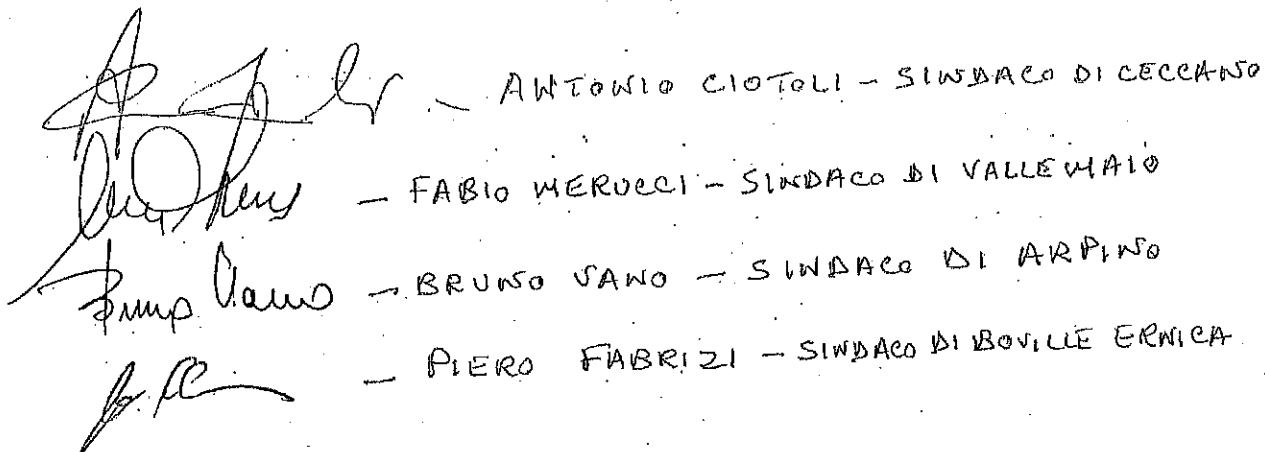 — ANTONIO CIOTOLI – SINDACO DI CECCANO
— FABIO MERUCCI – SINDACO DI VALLEMAIO
Bruno Vano — BRUNO VANO — SINDACO DI ARPINO
— PIERO FABRIZI – SINDACO DI BOVILLE ERNICA